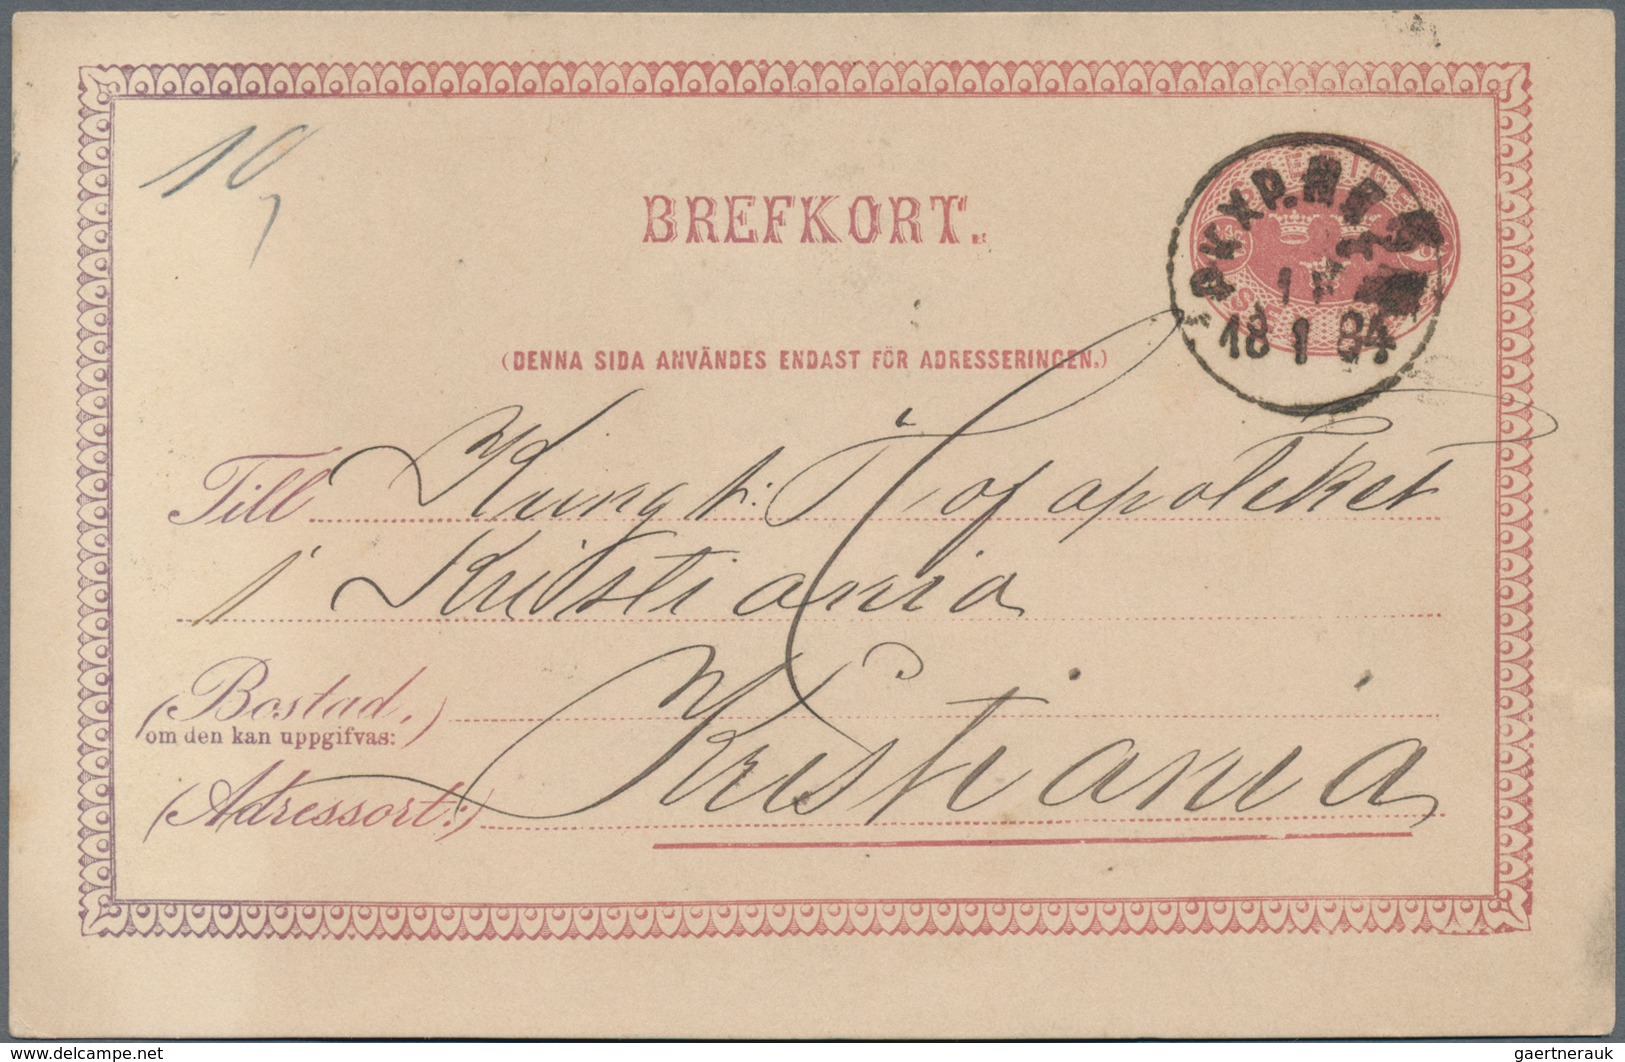 10
7
BREFKORT.
SVERIGE
PKXP.Nr
18 1 84
(DENNA SIDA ANVÄNDES ENDAST FÖR ADRESSERINGEN.)
Till Kungl: Hofapoteket
i Kristiania
(Bostad,)
om den kan uppgifvas:
(Adressort:) Kristiania
www.delcampe.net
gaertnerauk